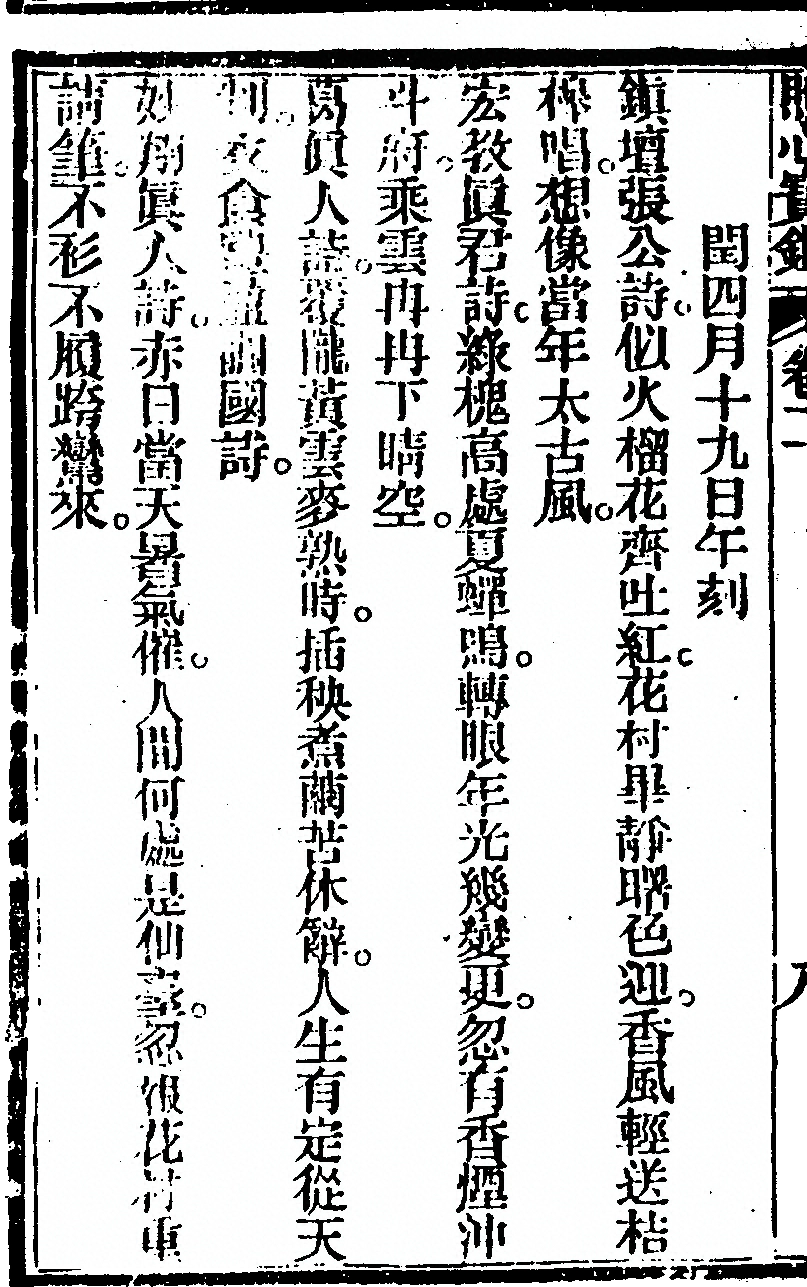 卷二
閏四月十九日午刻
鎮壇張公詩。似火榴花齊吐紅。花村畢靜曙色迎。香風輕送桔
槔唱。想像當年太古風。
宏敎眞君詩。綠槐高處夏蟬鳴。轉眼年光幾變更。忽有香煙沖
斗府。乘雲冉冉下晴空。
葛眞人詩。覆隴黃雲麥熟時。插秧煮繭苦休辭。人生有定從天
判。衣食國詩。
妙翔眞人詩。赤日當天暑氣催。人間何處是仙臺。忽報花村重
請筆。不衫不履跨鸞來。